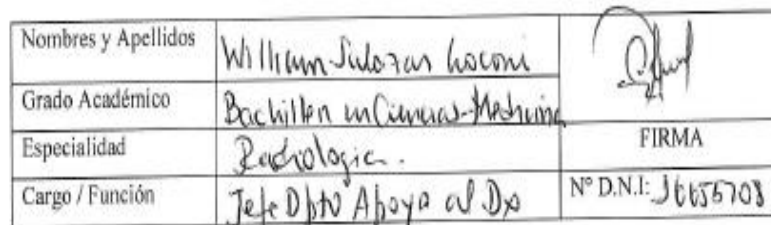 Nombres y Apellidos William Salazar
Grado Académico Bachiller en Ciencias-Medicina
Especialidad Radiologia.
FIRMA
Cargo / Función Jefe Dpto Apoyo al Dx
Nº D.N.I: